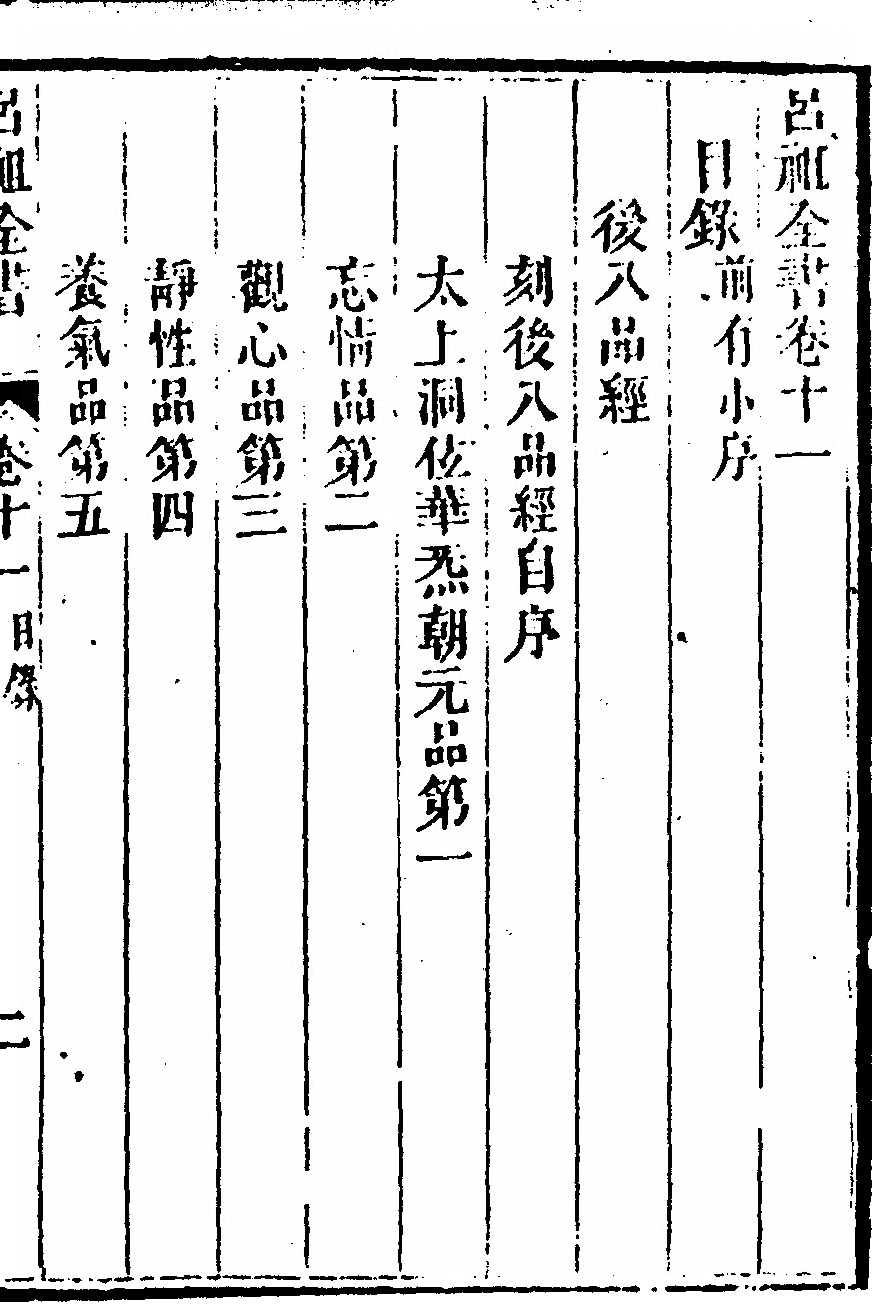 呂祖全書卷十一
目錄前有小序
後八品經
刻後八品經自序
太上洞佐華炁朝元品第一
忘情品第二
觀心品第三
靜性品第四
養氣品第五
呂祖全書 卷十一 目錄 二